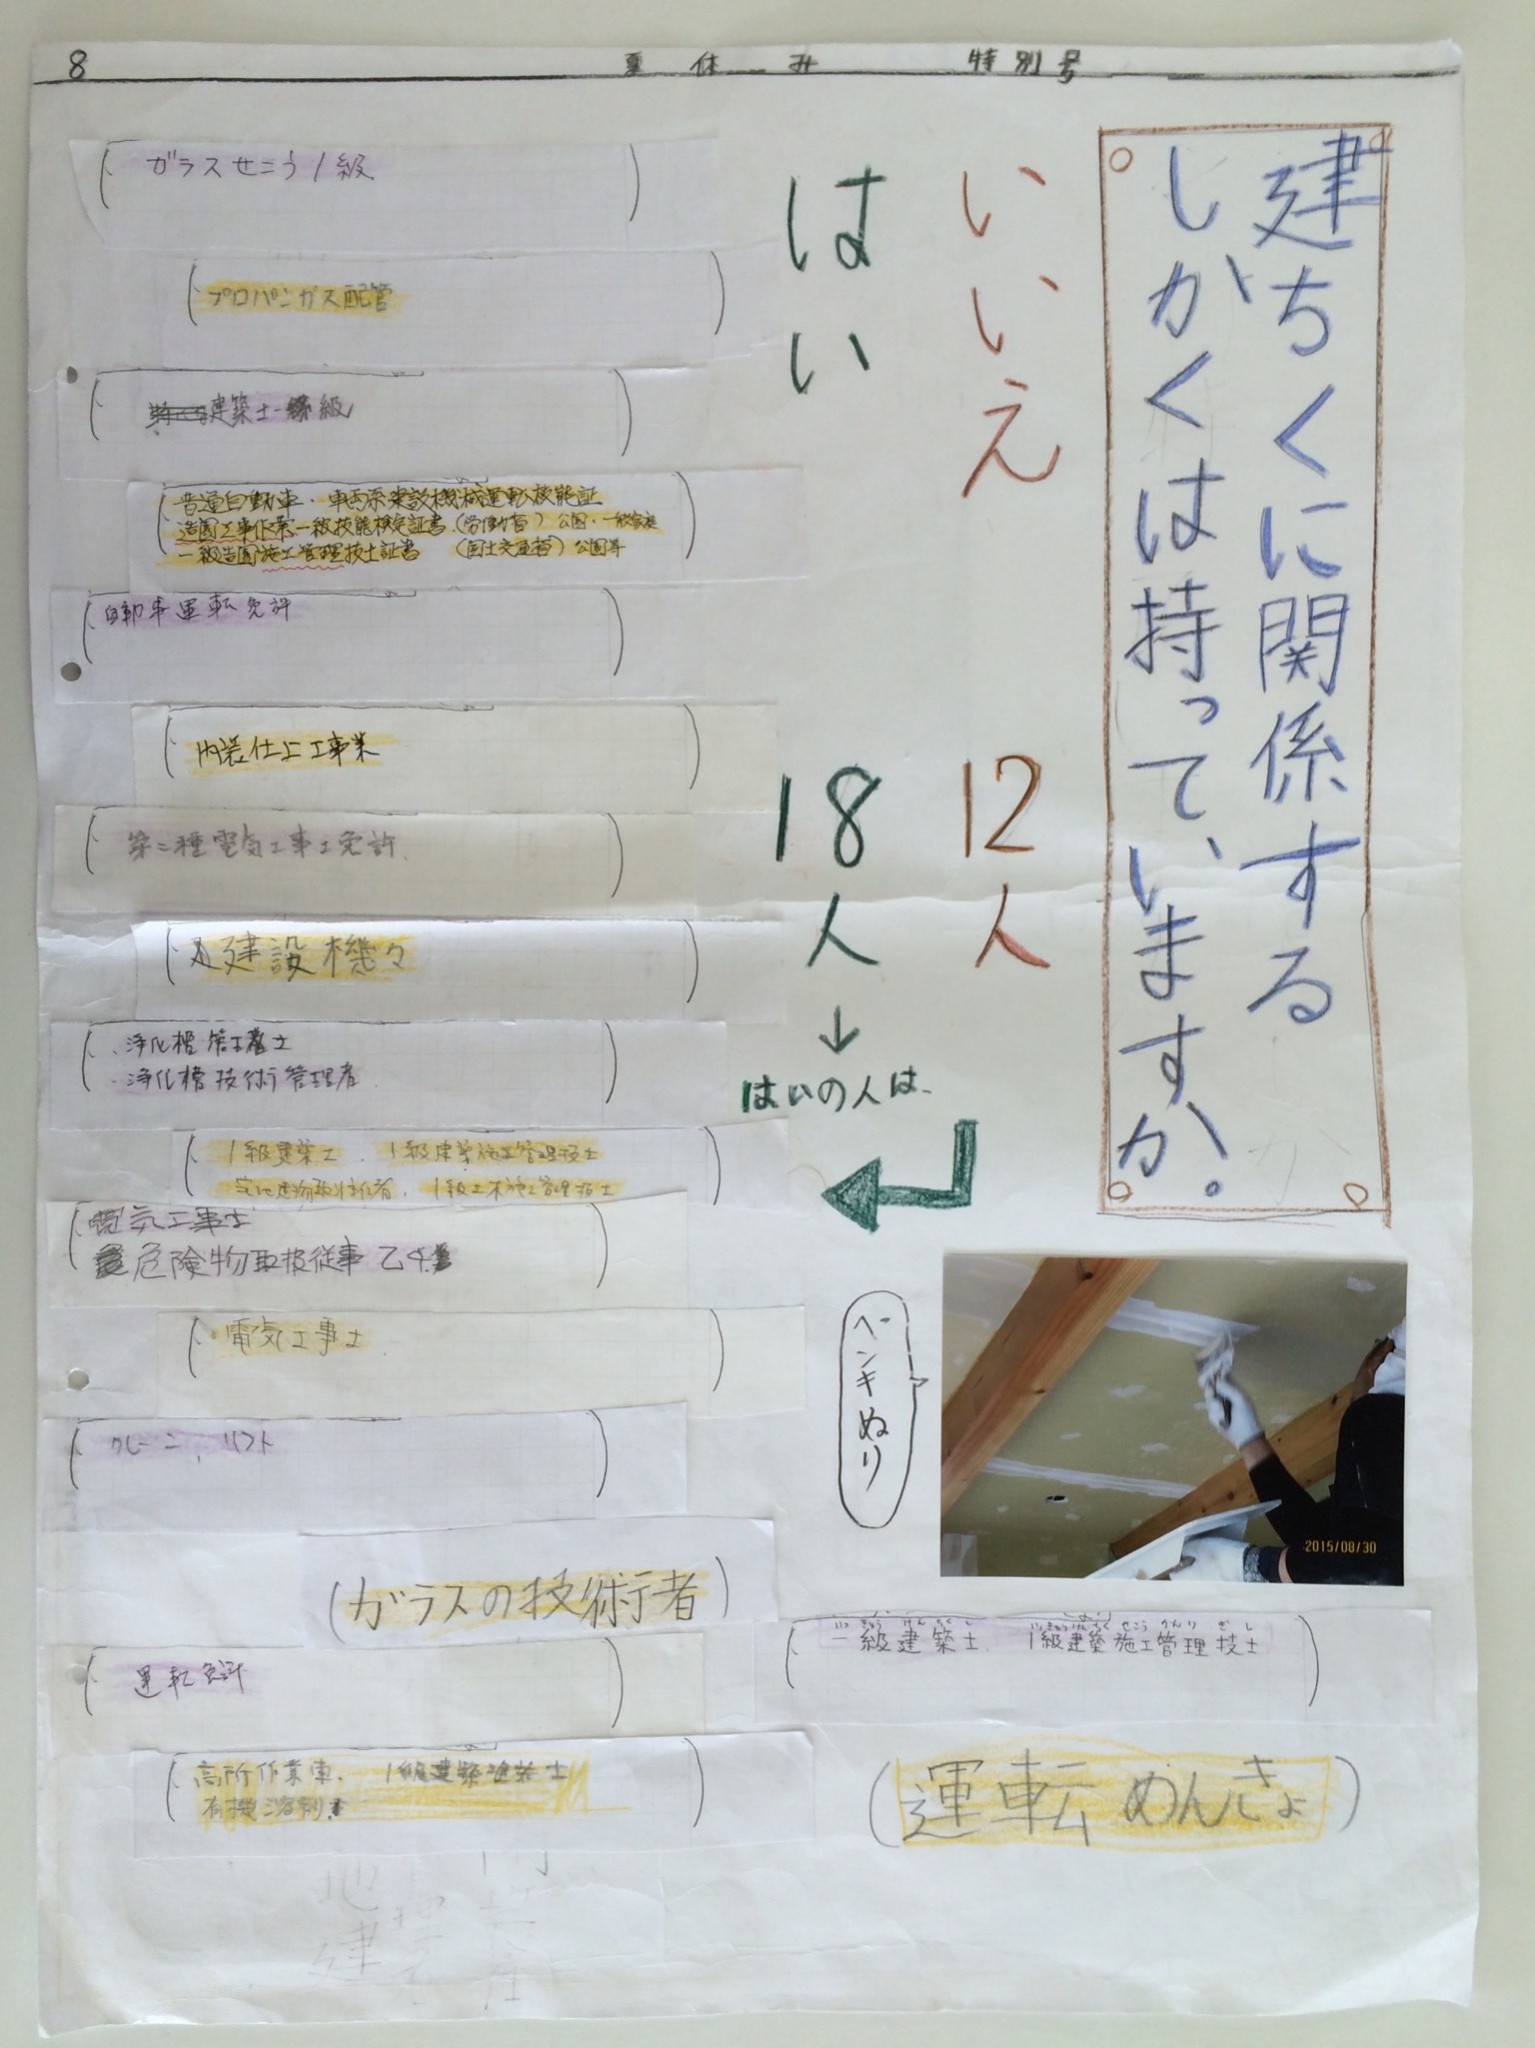 8
夏休み 特別号
建ちくに関係する
しかくは持っていますか。
いいえ 12人
はい 18人
↓
はいの人は、
ガラスせこう1級
プロパンガス配管
建築士 級
普通自動車・車両系建設機械運転技能証
造園工事作業一級技能検定証書(労働省)公園・一般家庭
一級造園施工管理技士証書 (国土交通省)公園等
自動車運転免許
内装仕上工事業
第二種電気工事士免許
建設機々
・浄化槽
・浄化槽技術管理者
1級建築士、1級建築施工管理技士
1級土木施工管理技士
電気工事士
危険物取扱従事 乙4
電気工事士
クレーン、リフト
(ガラスの技術者)
運転免許
高所作業車、1級建築 士
有機溶剤
ペンキぬり
2015/08/30
いっきゅうけんちくし いっきゅうけんちくせこうかんりぎし
一級建築士、1級建築施工管理技士
(運転めんきょ)